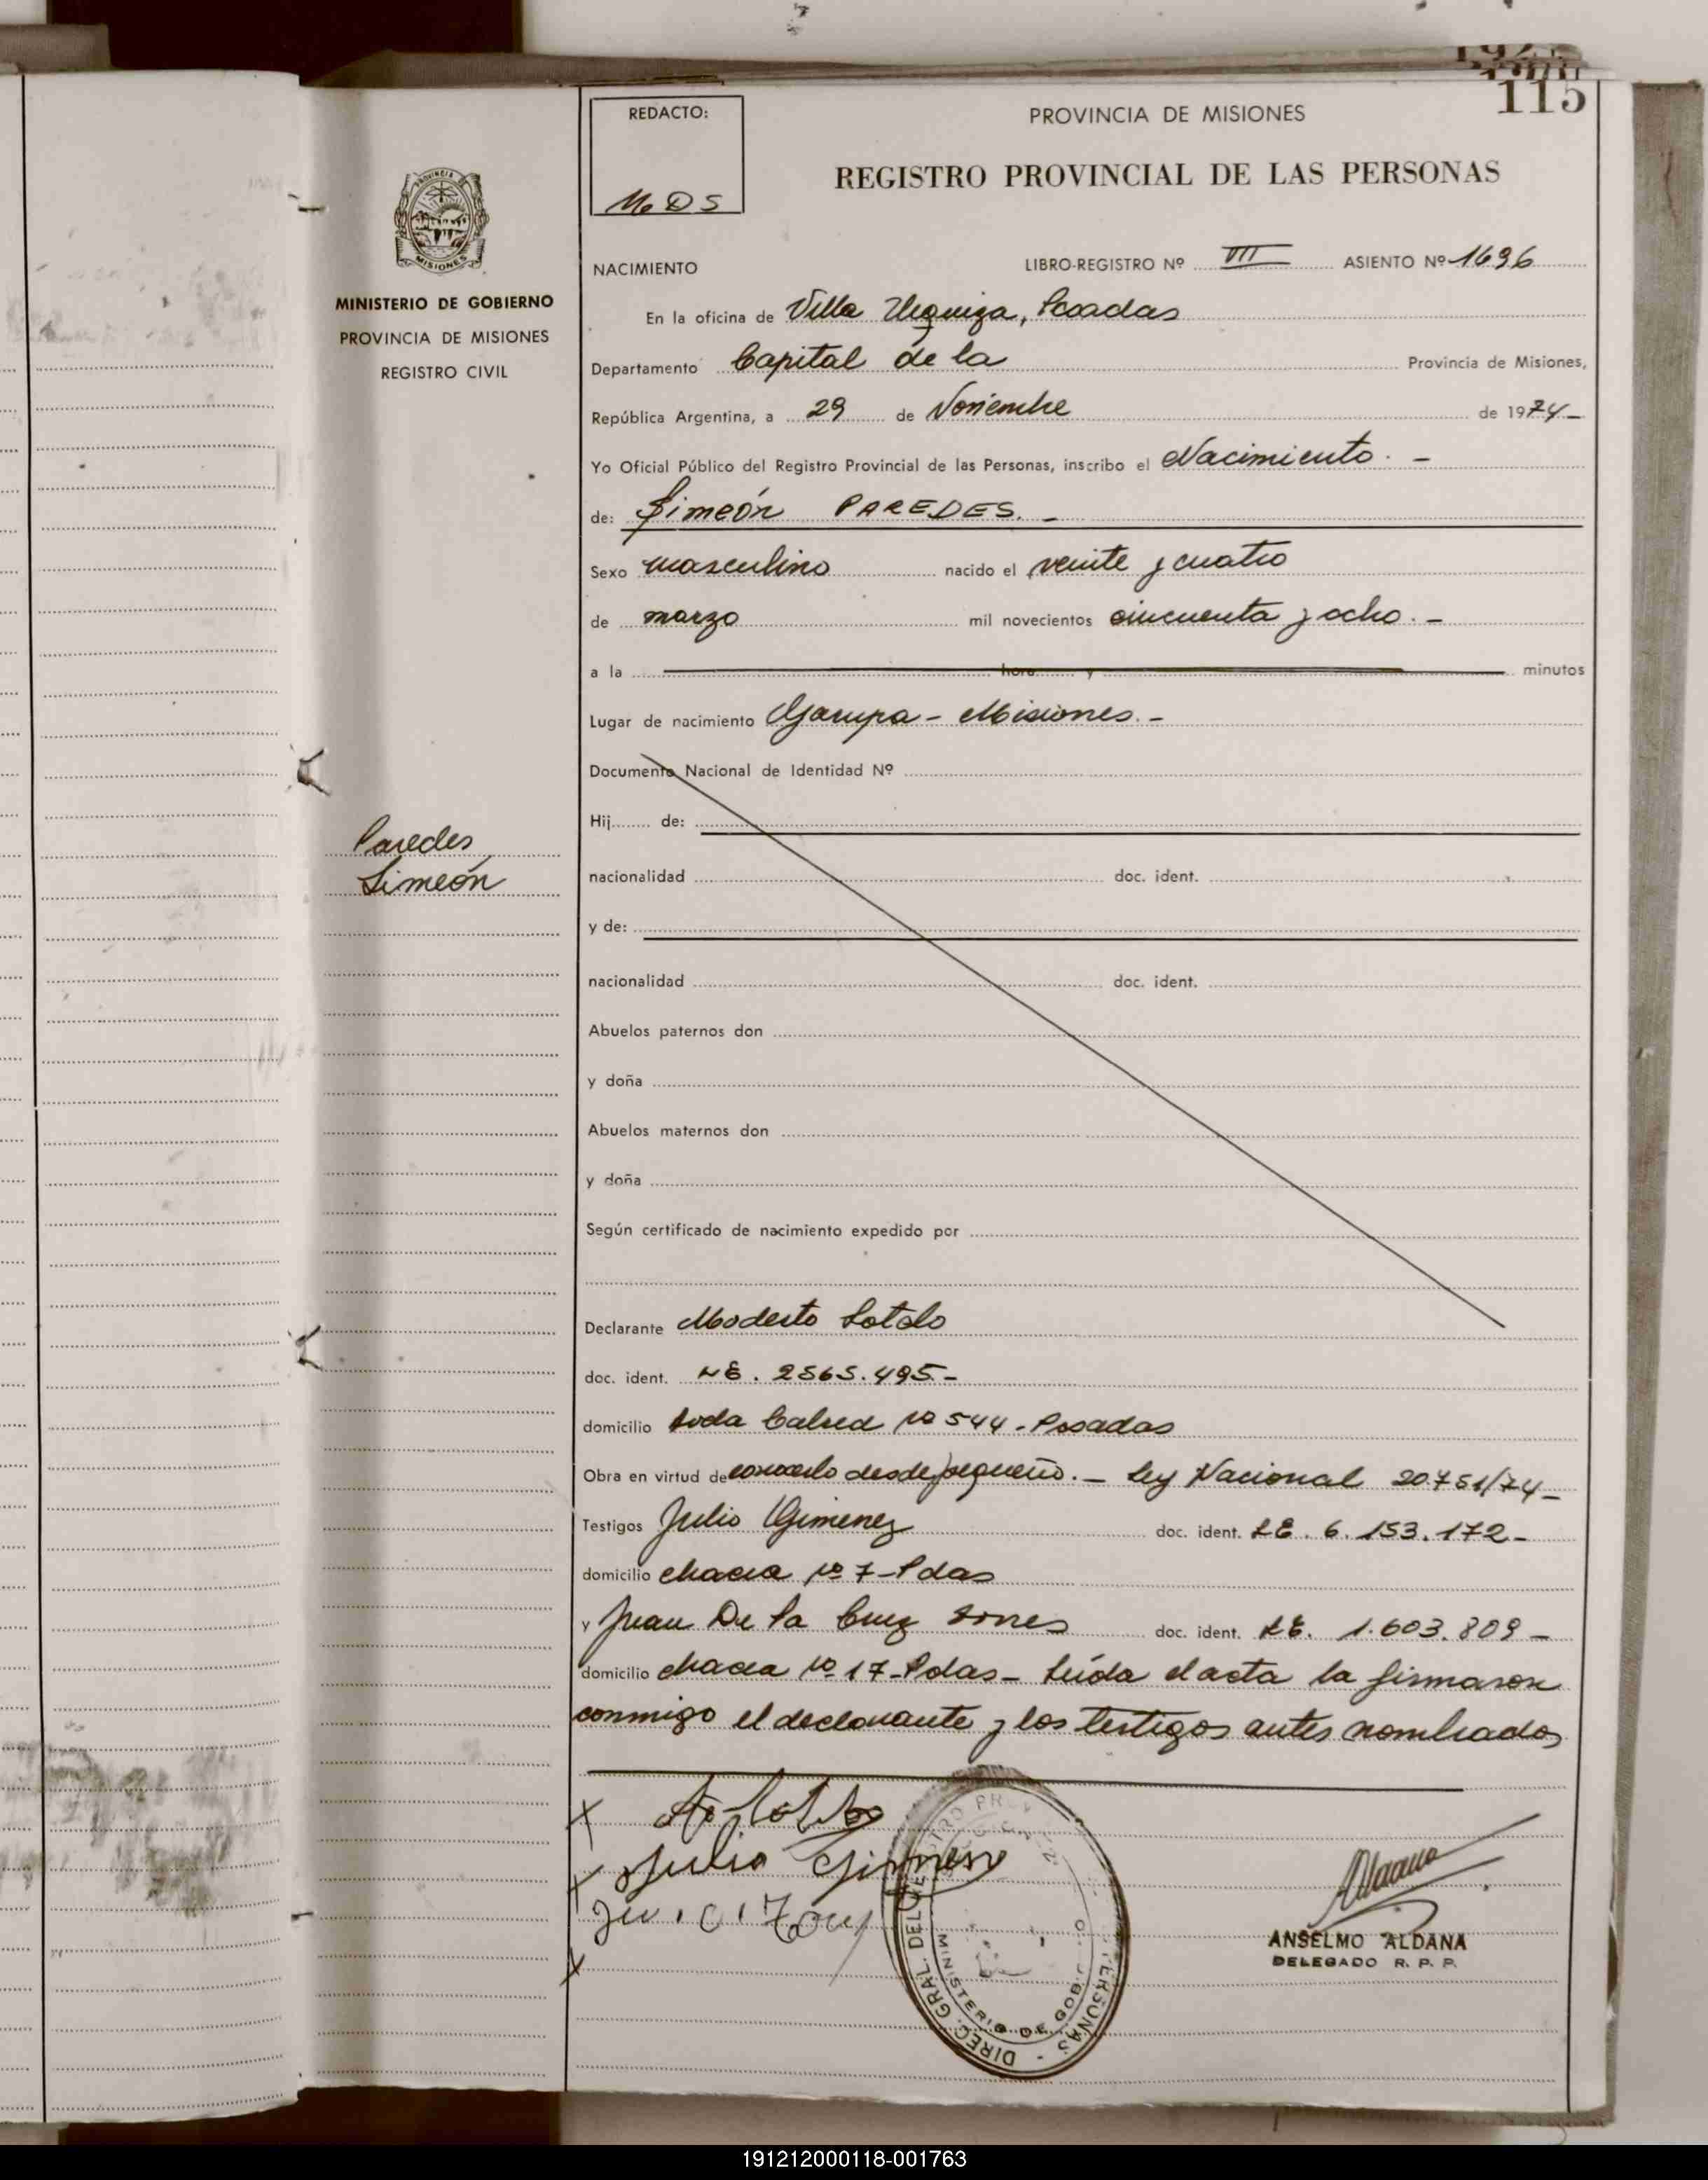 115
REDACTO:
PROVINCIA DE MISIONES
REGISTRO PROVINCIAL DE LAS PERSONAS
PROVINCIA DE
MISIONES
NACIMIENTO LIBRO-REGISTRO Nº VII ASIENTO Nº 1696
MINISTERIO DE GOBIERNO
PROVINCIA DE MISIONES
REGISTRO CIVIL
En la oficina de Villa Urquiza, Posadas
Departamento Capital de la Provincia de Misiones,
República Argentina, a 29 de Noviembre de 1974-
Yo Oficial Público del Registro Provincial de las Personas, inscribo el Nacimiento. -
de: Simeón PAREDES. -
Sexo masculino nacido el veinte y cuatro
de marzo mil novecientos cincuenta y ocho. -
a la hora y minutos
Lugar de nacimiento Garupa - Misiones. -
Documento Nacional de Identidad Nº
Paredes
Simeón
Hij de:
nacionalidad doc. ident.
y de:
nacionalidad doc. ident.
Abuelos paternos don
y doña
Abuelos maternos don
y doña
Según certificado de nacimiento expedido por
Declarante Modesto Sotelo
doc. ident. 2565.495.-
domicilio Nº 544 - Posadas
Obra en virtud de conocerlo desde pequeño. - Ley Nacional 20.751/74-
Testigos Julio Gimenez doc. ident. LE. 6.153.172-
domicilio chacra Nº 7-Pdas
y Juan De la Cruz Torres doc. ident. LE. 1.603.809-
domicilio chacra Nº 17-Pdas- Leída el acta la firmaron
conmigo el declarante y los testigos antes nombrados
Julio Gimenez
DIREC. GRAL. DEL REGISTRO PROV. PERSONAS
MINISTERIO DE GOBIERNO
ANSELMO ALDANA
DELEGADO R. P. P.
191212000118-001763